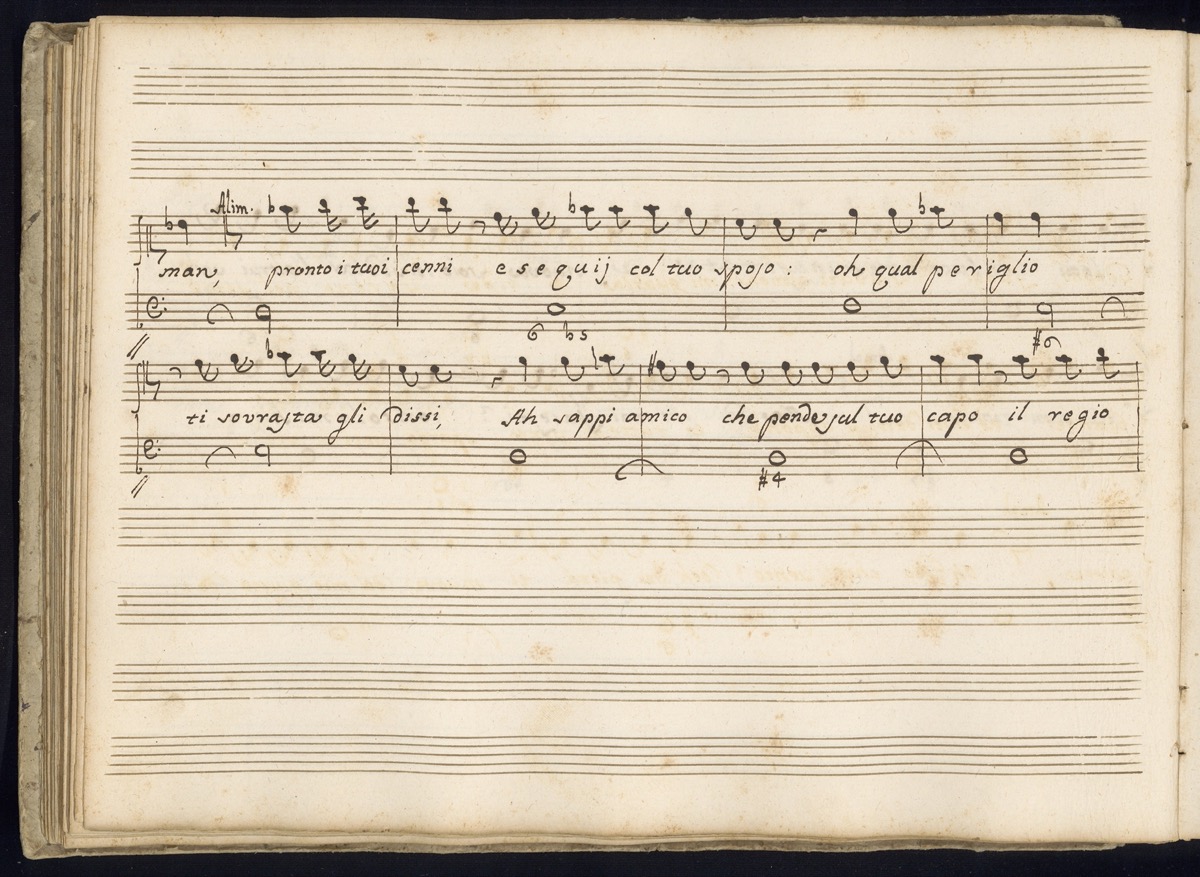 Alim.
man, pronto i tuoi cenni esequij col tuo sposo: oh qual periglio
6 b5 #6
ti sovrasta gli dissi, Ah sappi amico che pende sul tuo capo il regio
#4